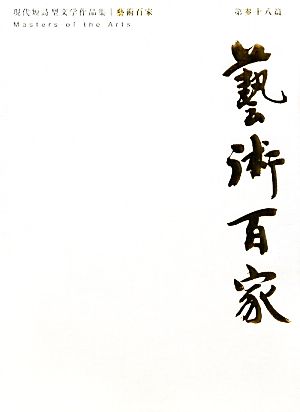 現代短詩型文学作品集|藝術百家
Masters of the Arts
第参十八篇
藝術百家